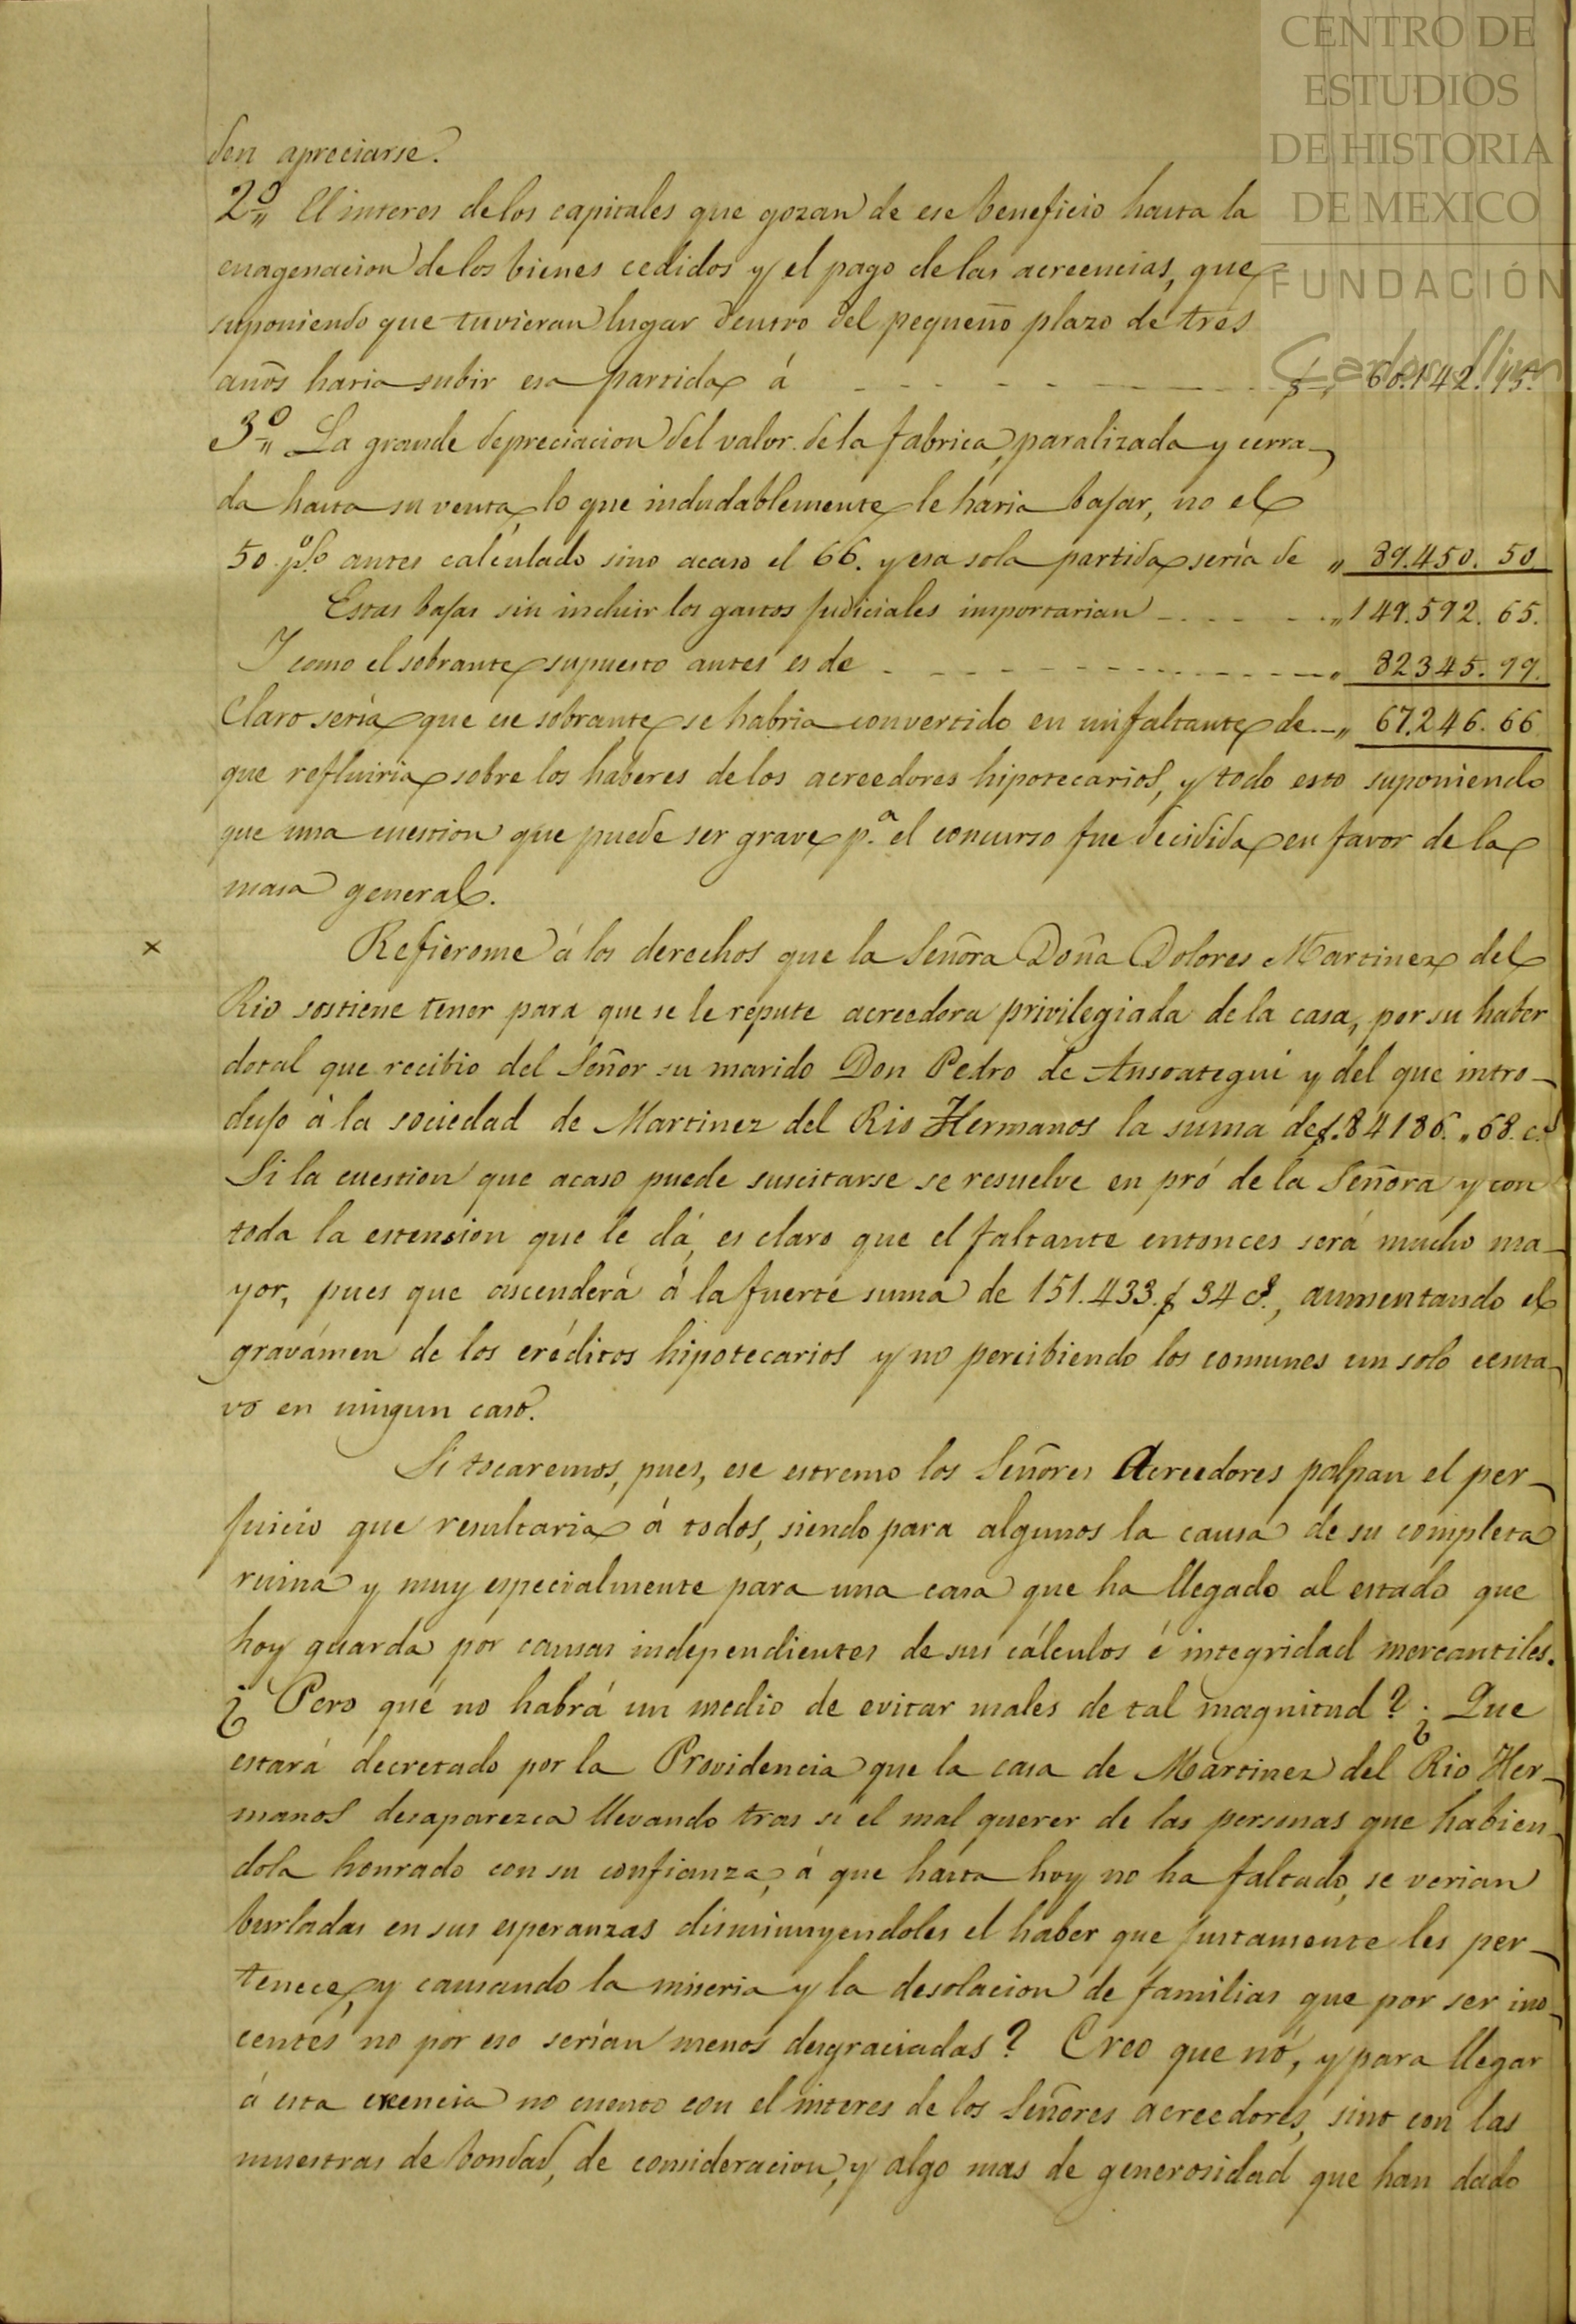 CENTRO DE
ESTUDIOS
DE HISTORIA
DE MEXICO
FUNDACIÓN
Carlos Slim
den apreciarse.
2º„ El interes de los capitales que gozan de ese beneficio hasta la
enagenacion de los bienes cedidos y el pago de las acreencias, que
suponiendo que tuvieran lugar dentro del pequeño plazo de tres
años haria subir esa partida á - - - - - $ „ 60.142. 15.
3º„ La grande depreciacion del valor de la fabrica, paralizada y cerra-
da hasta su venta, lo que indudablemente le haria bajar, no el
50 p% antes calculado sino acaso el 66. y esa sola partida sería de „ 89.450. 50
Estas bajas sin incluir los gastos judiciales importarian - - - - „ 149.592. 65.
Y como el sobrante supuesto antes es de - - - - - „ 82345. 99.
Claro sería que ese sobrante se habria convertido en un faltante de - „ 67.246. 66
que refluiria sobre los haberes de los acreedores hipotecarios, y todo esto suponiendo
que una cuestion que puede ser grave p.ª el concurso fue decidida en favor de la
masa general.
× Refierome á los derechos que la Señora Doña Dolores Martinez del
Rio sostiene tener para que se le repute acreedora privilegiada de la casa, por su haber
dotal que recibio del Señor su marido Don Pedro de Ansoategui y del que intro-
dujo á la sociedad de Martinez del Rio Hermanos la suma de $.84186. „ 68. c.s
Si la cuestion que acaso puede suscitarse se resuelve en pró de la Señora y con
toda la estension que le dá, es claro que el faltante entonces será mucho ma-
yor, pues que ascenderá á la fuerte suma de 151.433.$ 34 cs., aumentando el
gravámen de los créditos hipotecarios y no percibiendo los comunes un solo centa-
vo en ningun caso.
Si tocaremos, pues, ese estremo los Señores Acreedores palpan el per-
juicio que resultaria á todos, siendo para algunos la causa de su completa
ruina y muy especialmente para una casa que ha llegado al estado que
hoy guarda por causas independientes de sus cálculos é integridad mercantiles.
¿Pero qué no habrá un medio de evitar males de tal magnitud? ¿Que
estará decretado por la Providencia que la casa de Martinez del Rio Her-
manos desaparezca llevando tras si el mal querer de las personas que habien-
dola honrado con su confianza, á que hasta hoy no ha faltado, se verian
burladas en sus esperanzas disminuyendoles el haber que justamente les per-
tenece, y causando la miseria y la desolacion de familias que por ser ino-
centes no por eso serían menos desgraciadas? Creo que nó, y para llegar
á esta creencia no cuento con el interes de los Señores acreedores, sino con las
muestras de bondad, de consideracion, y algo mas de generosidad que han dado